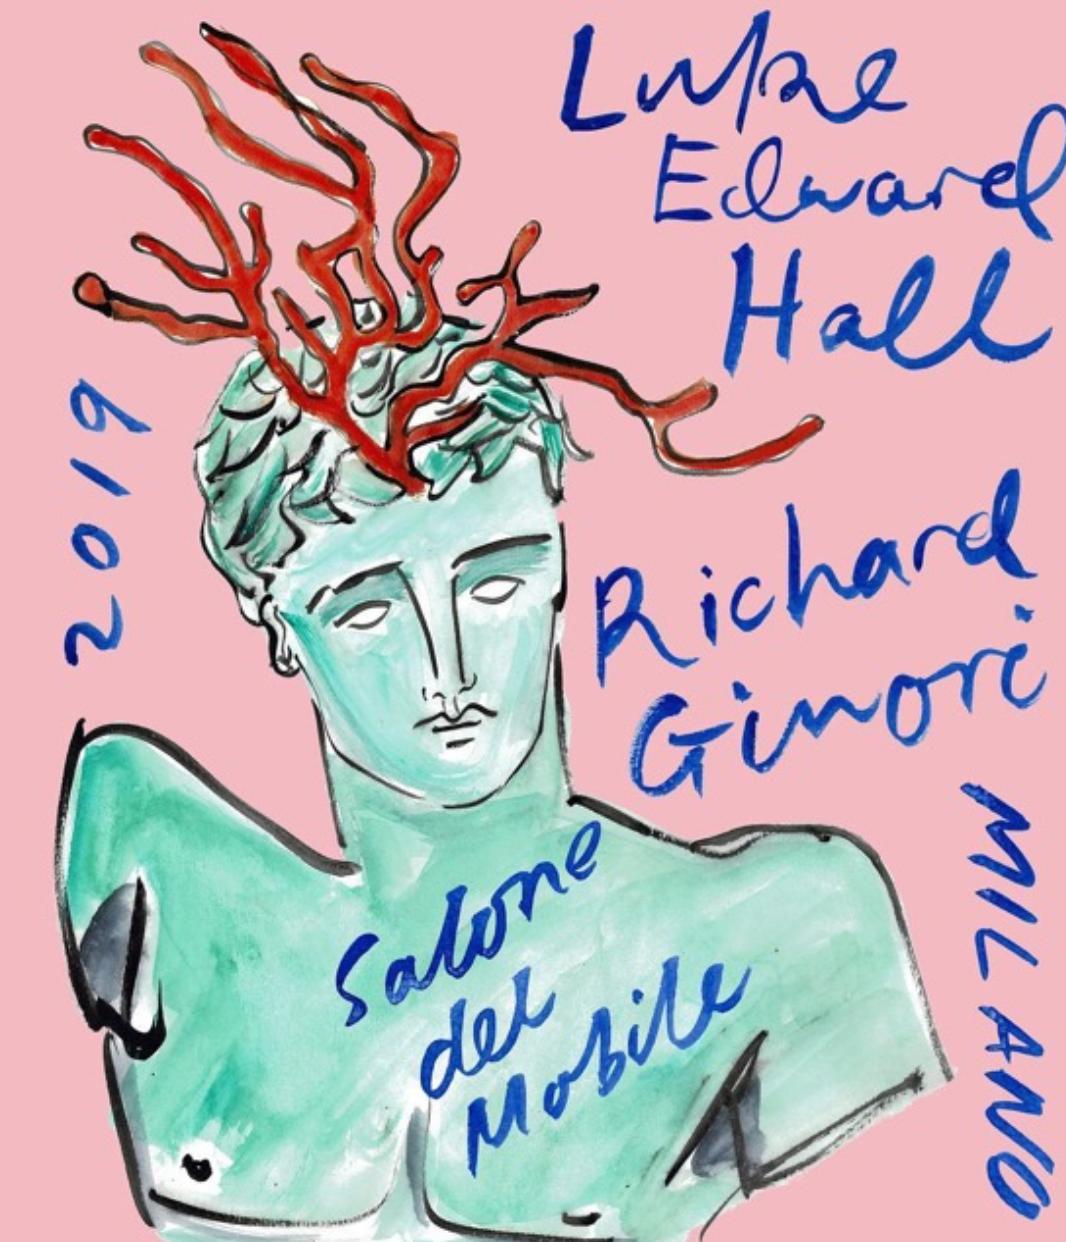 Luke
Edward
Hall
2019
Richard
Ginori
MILANO
Salone
del
Mobile